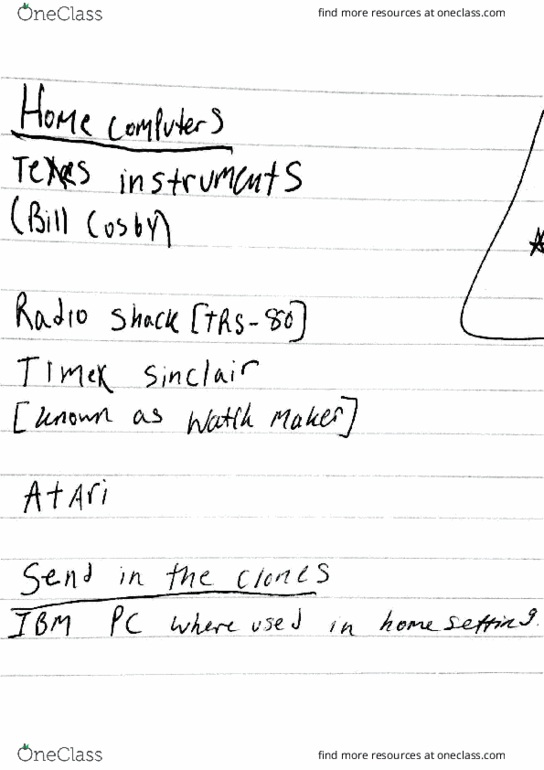 OneClass
find more resources at oneclass.com
Home computers
Texas instruments
(Bill Cosby)
Radio shack [TRS-80]
Timex sinclair
[known as watch maker]
Atari
Send in the clones
IBM PC where used in home setting.
OneClass
find more resources at oneclass.com